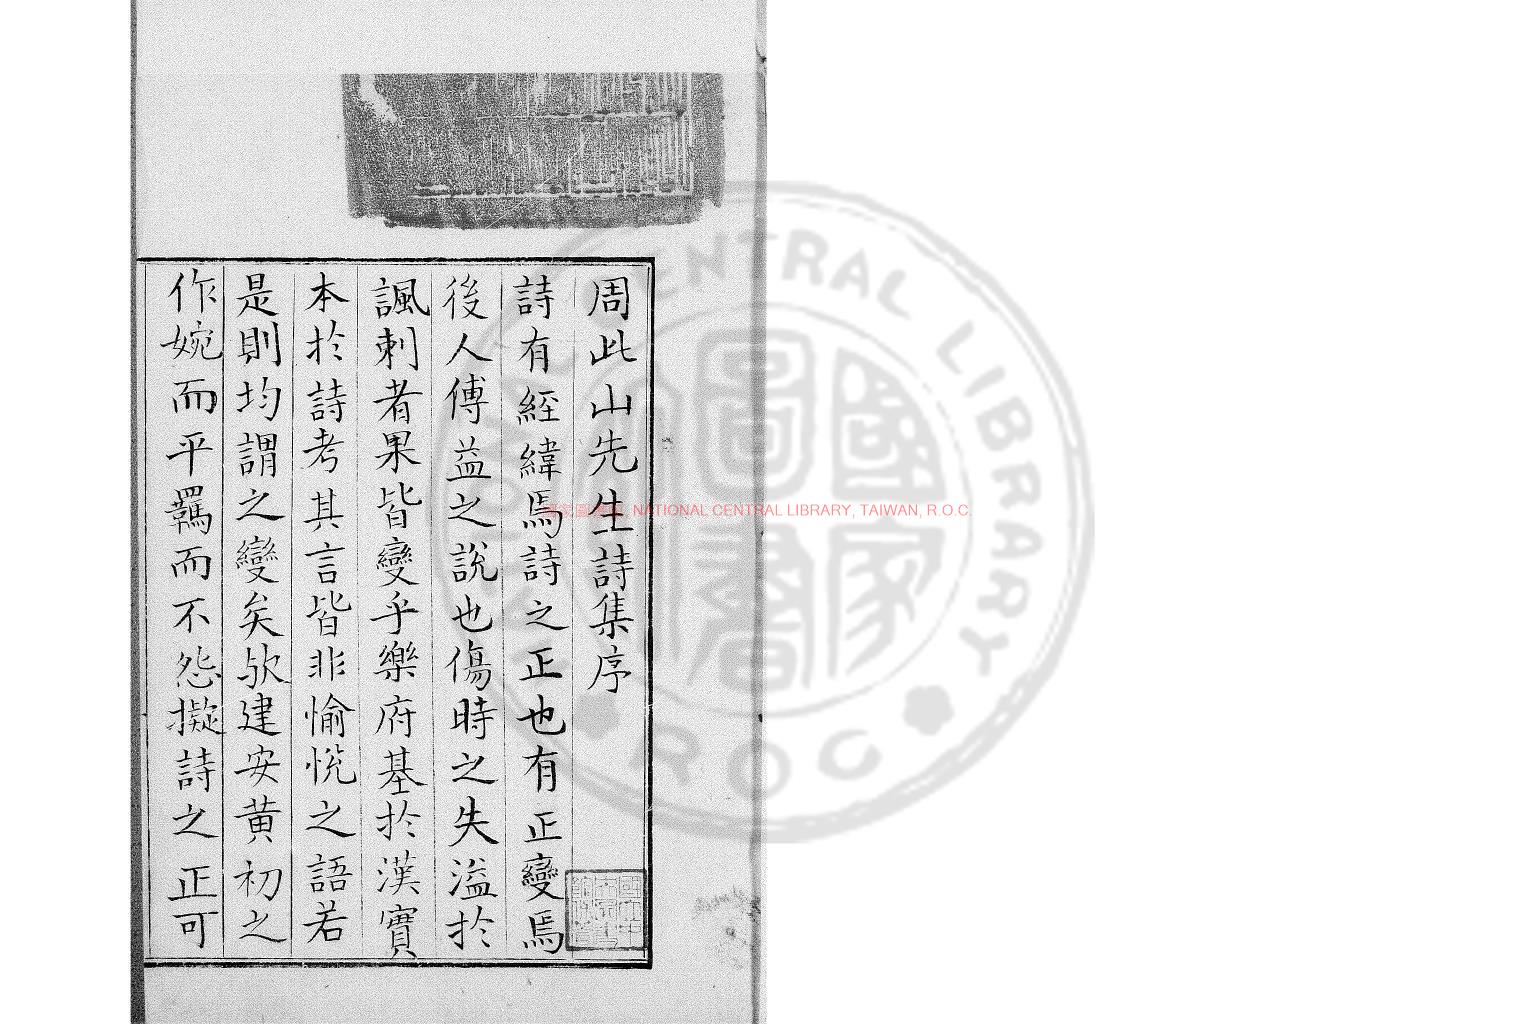 周此山先生詩集序
詩有經緯焉詩之正也有正變焉
後人傅益之說也傷時之失溢於
諷刺者果皆變乎樂府基於漢實
本於詩考其言皆非愉悅之語若
是則均謂之變矣欤建安黃初之
作婉而平羈而不怨擬詩之正可
國家圖書館, NATIONAL CENTRAL LIBRARY, TAIWAN, R.O.C.
NATIONAL CENTRAL LIBRARY
ROC
國家圖書